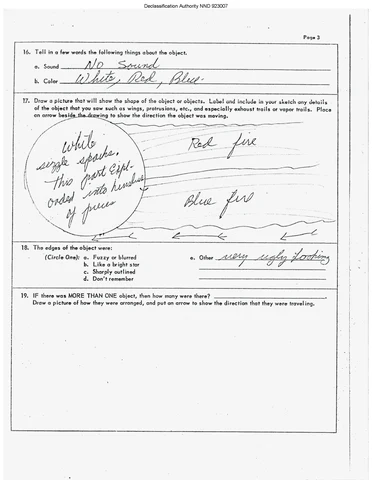 Declassification Authority NND 923007
Page 3
16. Tell in a few words the following things about the object.
a. Sound No Sound
b. Color White, Red, Blue-
17. Draw a picture that will show the shape of the object or objects. Label and include in your sketch any details
of the object that you saw such as wings, protrusions, etc., and especially exhaust trails or vapor trails. Place
an arrow beside the drawing to show the direction the object was moving.
White
sizzle sparks.
this part Expl-
oded into
of pieces
Red fire
Blue fire
18. The edges of the object were:
(Circle One): a. Fuzzy or blurred
b. Like a bright star
c. Sharply outlined
d. Don't remember
e. Other very ugly Looking
19. IF there was MORE THAN ONE object, then how many were there?
Draw a picture of how they were arranged, and put an arrow to show the direction that they were traveling.